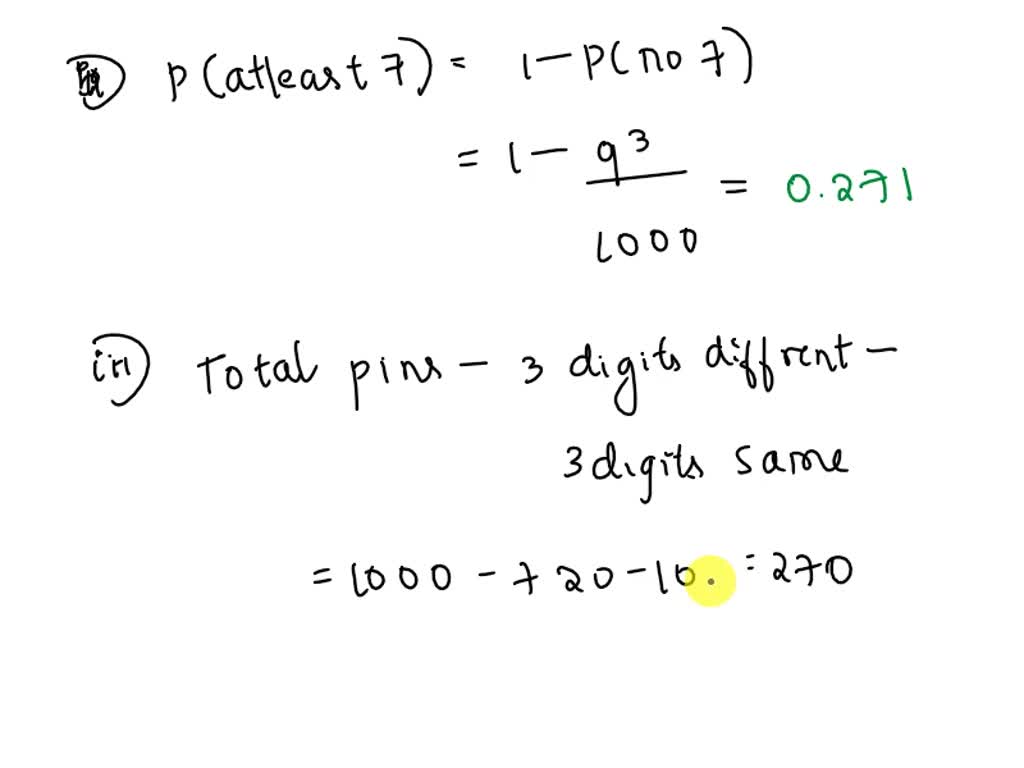 P(atleast 7) = 1 - P(no 7)
= 1 - 9^3/1000 = 0.271
iii) Total pins - 3 digits diffrent -
3 digits same
= 1000 - 720 - 10. = 270